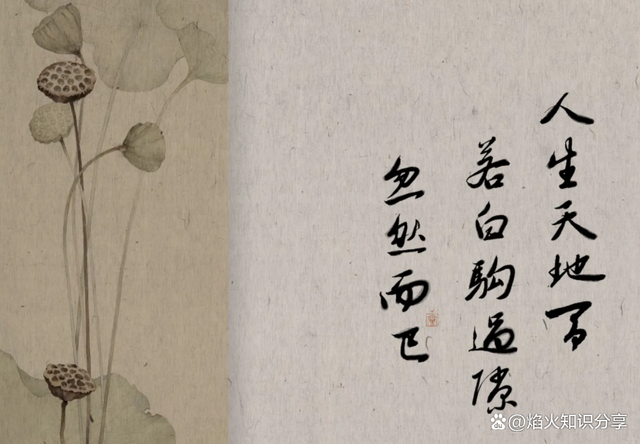 人生天地间
若白驹过隙
忽然而已
@焰火知识分享